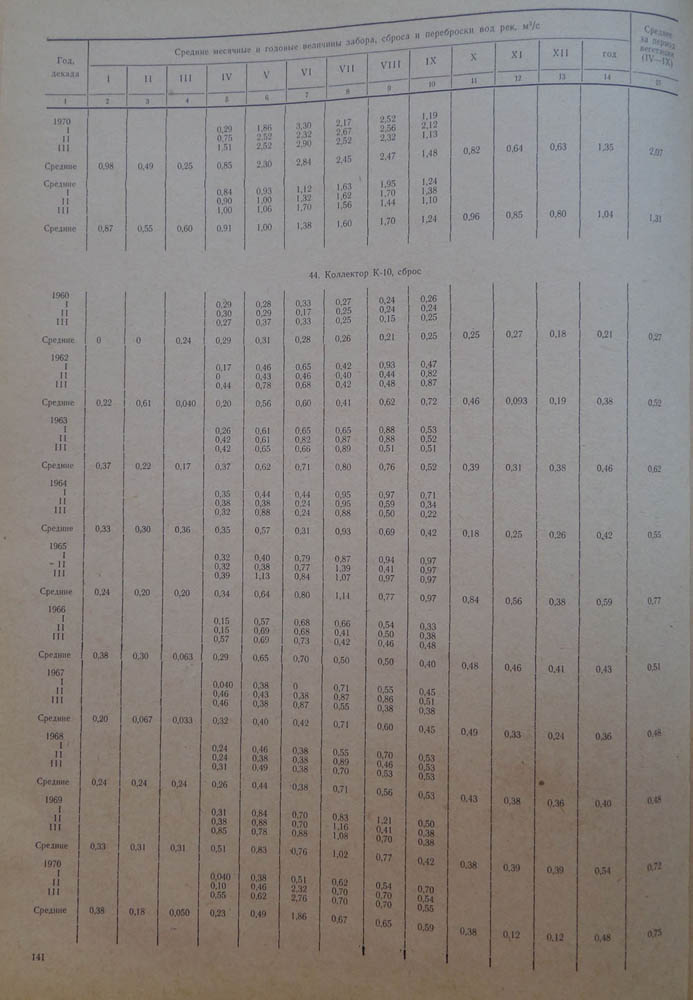 Год, декада | Средние месячные и годовые величины забора, сброса и переброски вод рек, м³/с | Средние за период вегетации (IV—IX)
I II III IV V VI VII VIII IX X XI XII год
1 2 3 4 5 6 7 8 9 10 11 12 13 14 15
1970
I 0,29 1,86 3,30 2,17 2,52 1,19
II 0,75 2,52 2,32 2,67 2,56 2,12
III 1,51 2,52 2,90 2,52 2,32 1,13
Средние 0,98 0,49 0,25 0,85 2,30 2,84 2,45 2,47 1,48 0,82 0,64 0,63 1,35 2,07
Средние
I 0,84 0,93 1,12 1,63 1,95 1,24
II 0,90 1,00 1,32 1,62 1,70 1,38
III 1,00 1,06 1,70 1,56 1,44 1,10
Средние 0,87 0,55 0,60 0,91 1,00 1,38 1,60 1,70 1,24 0,96 0,85 0,80 1,04 1,31
44. Коллектор К-10, сброс
1960
I 0,29 0,28 0,33 0,27 0,24 0,26
II 0,30 0,29 0,17 0,25 0,24 0,24
III 0,27 0,37 0,33 0,25 0,15 0,25
Средние 0 0 0,24 0,29 0,31 0,28 0,26 0,21 0,25 0,25 0,27 0,18 0,21 0,27
1962
I 0,17 0,46 0,65 0,42 0,93 0,47
II 0 0,43 0,46 0,40 0,44 0,82
III 0,44 0,78 0,68 0,42 0,48 0,87
Средние 0,22 0,61 0,040 0,20 0,56 0,60 0,41 0,62 0,72 0,46 0,093 0,19 0,38 0,52
1963
I 0,26 0,61 0,65 0,65 0,88 0,53
II 0,42 0,61 0,82 0,87 0,88 0,52
III 0,42 0,65 0,66 0,89 0,51 0,51
Средние 0,37 0,22 0,17 0,37 0,62 0,71 0,80 0,76 0,52 0,39 0,31 0,38 0,46 0,62
1964
I 0,35 0,44 0,44 0,95 0,97 0,71
II 0,38 0,38 0,24 0,95 0,59 0,34
III 0,32 0,88 0,24 0,88 0,50 0,22
Средние 0,33 0,30 0,36 0,35 0,57 0,31 0,93 0,69 0,42 0,18 0,25 0,26 0,42 0,55
1965
I 0,32 0,40 0,79 0,87 0,94 0,97
II 0,32 0,38 0,77 1,39 0,41 0,97
III 0,39 1,13 0,84 1,07 0,97 0,97
Средние 0,24 0,20 0,20 0,34 0,64 0,80 1,11 0,77 0,97 0,84 0,56 0,38 0,59 0,77
1966
I 0,15 0,57 0,68 0,66 0,54 0,33
II 0,15 0,69 0,68 0,41 0,50 0,38
III 0,57 0,69 0,73 0,42 0,46 0,48
Средние 0,38 0,30 0,063 0,29 0,65 0,70 0,50 0,50 0,40 0,48 0,46 0,41 0,43 0,51
1967
I 0,040 0,38 0 0,71 0,55 0,45
II 0,46 0,43 0,38 0,87 0,86 0,51
III 0,46 0,38 0,87 0,55 0,38 0,38
Средние 0,20 0,067 0,033 0,32 0,40 0,42 0,71 0,60 0,45 0,49 0,33 0,24 0,36 0,48
1968
I 0,24 0,46 0,38 0,55 0,70 0,53
II 0,24 0,38 0,38 0,89 0,46 0,53
III 0,31 0,49 0,38 0,70 0,53 0,53
Средние 0,24 0,24 0,24 0,26 0,44 0,38 0,71 0,56 0,53 0,43 0,38 0,36 0,40 0,48
1969
I 0,31 0,84 0,70 0,83 1,21 0,50
II 0,38 0,88 0,70 1,16 0,41 0,38
III 0,85 0,78 0,88 1,08 0,70 0,38
Средние 0,33 0,31 0,31 0,51 0,83 0,76 1,02 0,77 0,42 0,38 0,39 0,39 0,54 0,72
1970
I 0,040 0,38 0,51 0,62 0,54 0,70
II 0,10 0,46 2,32 0,70 0,70 0,54
III 0,55 0,62 2,76 0,70 0,70 0,55
Средние 0,38 0,18 0,050 0,23 0,49 1,86 0,67 0,65 0,59 0,38 0,12 0,12 0,48 0,75
141